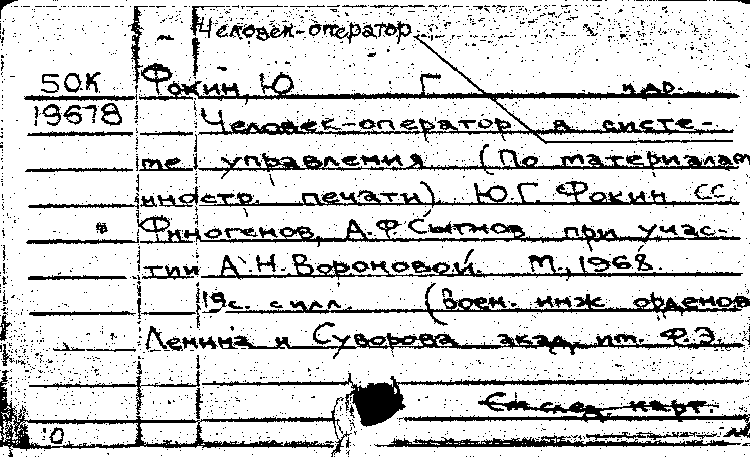 Человек-оператор
50К Фокин, Ю Г и др.
19678 Человек-оператор в систе-
ме управления (По материалам
иностр. печати) Ю.Г. Фокин, С.С.
Финогенов, А.Ф. Сытнов при учас-
тии А.Н. Вороновой. М., 1968.
19с. с илл. (Воен. инж орденов
Ленина и Суворова акад. им. Ф.Э.
См след. карт.
10